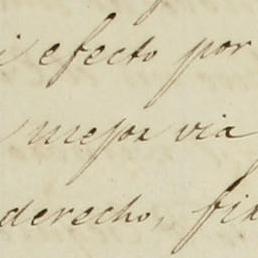 efecto por
mejor via
derecho, fix